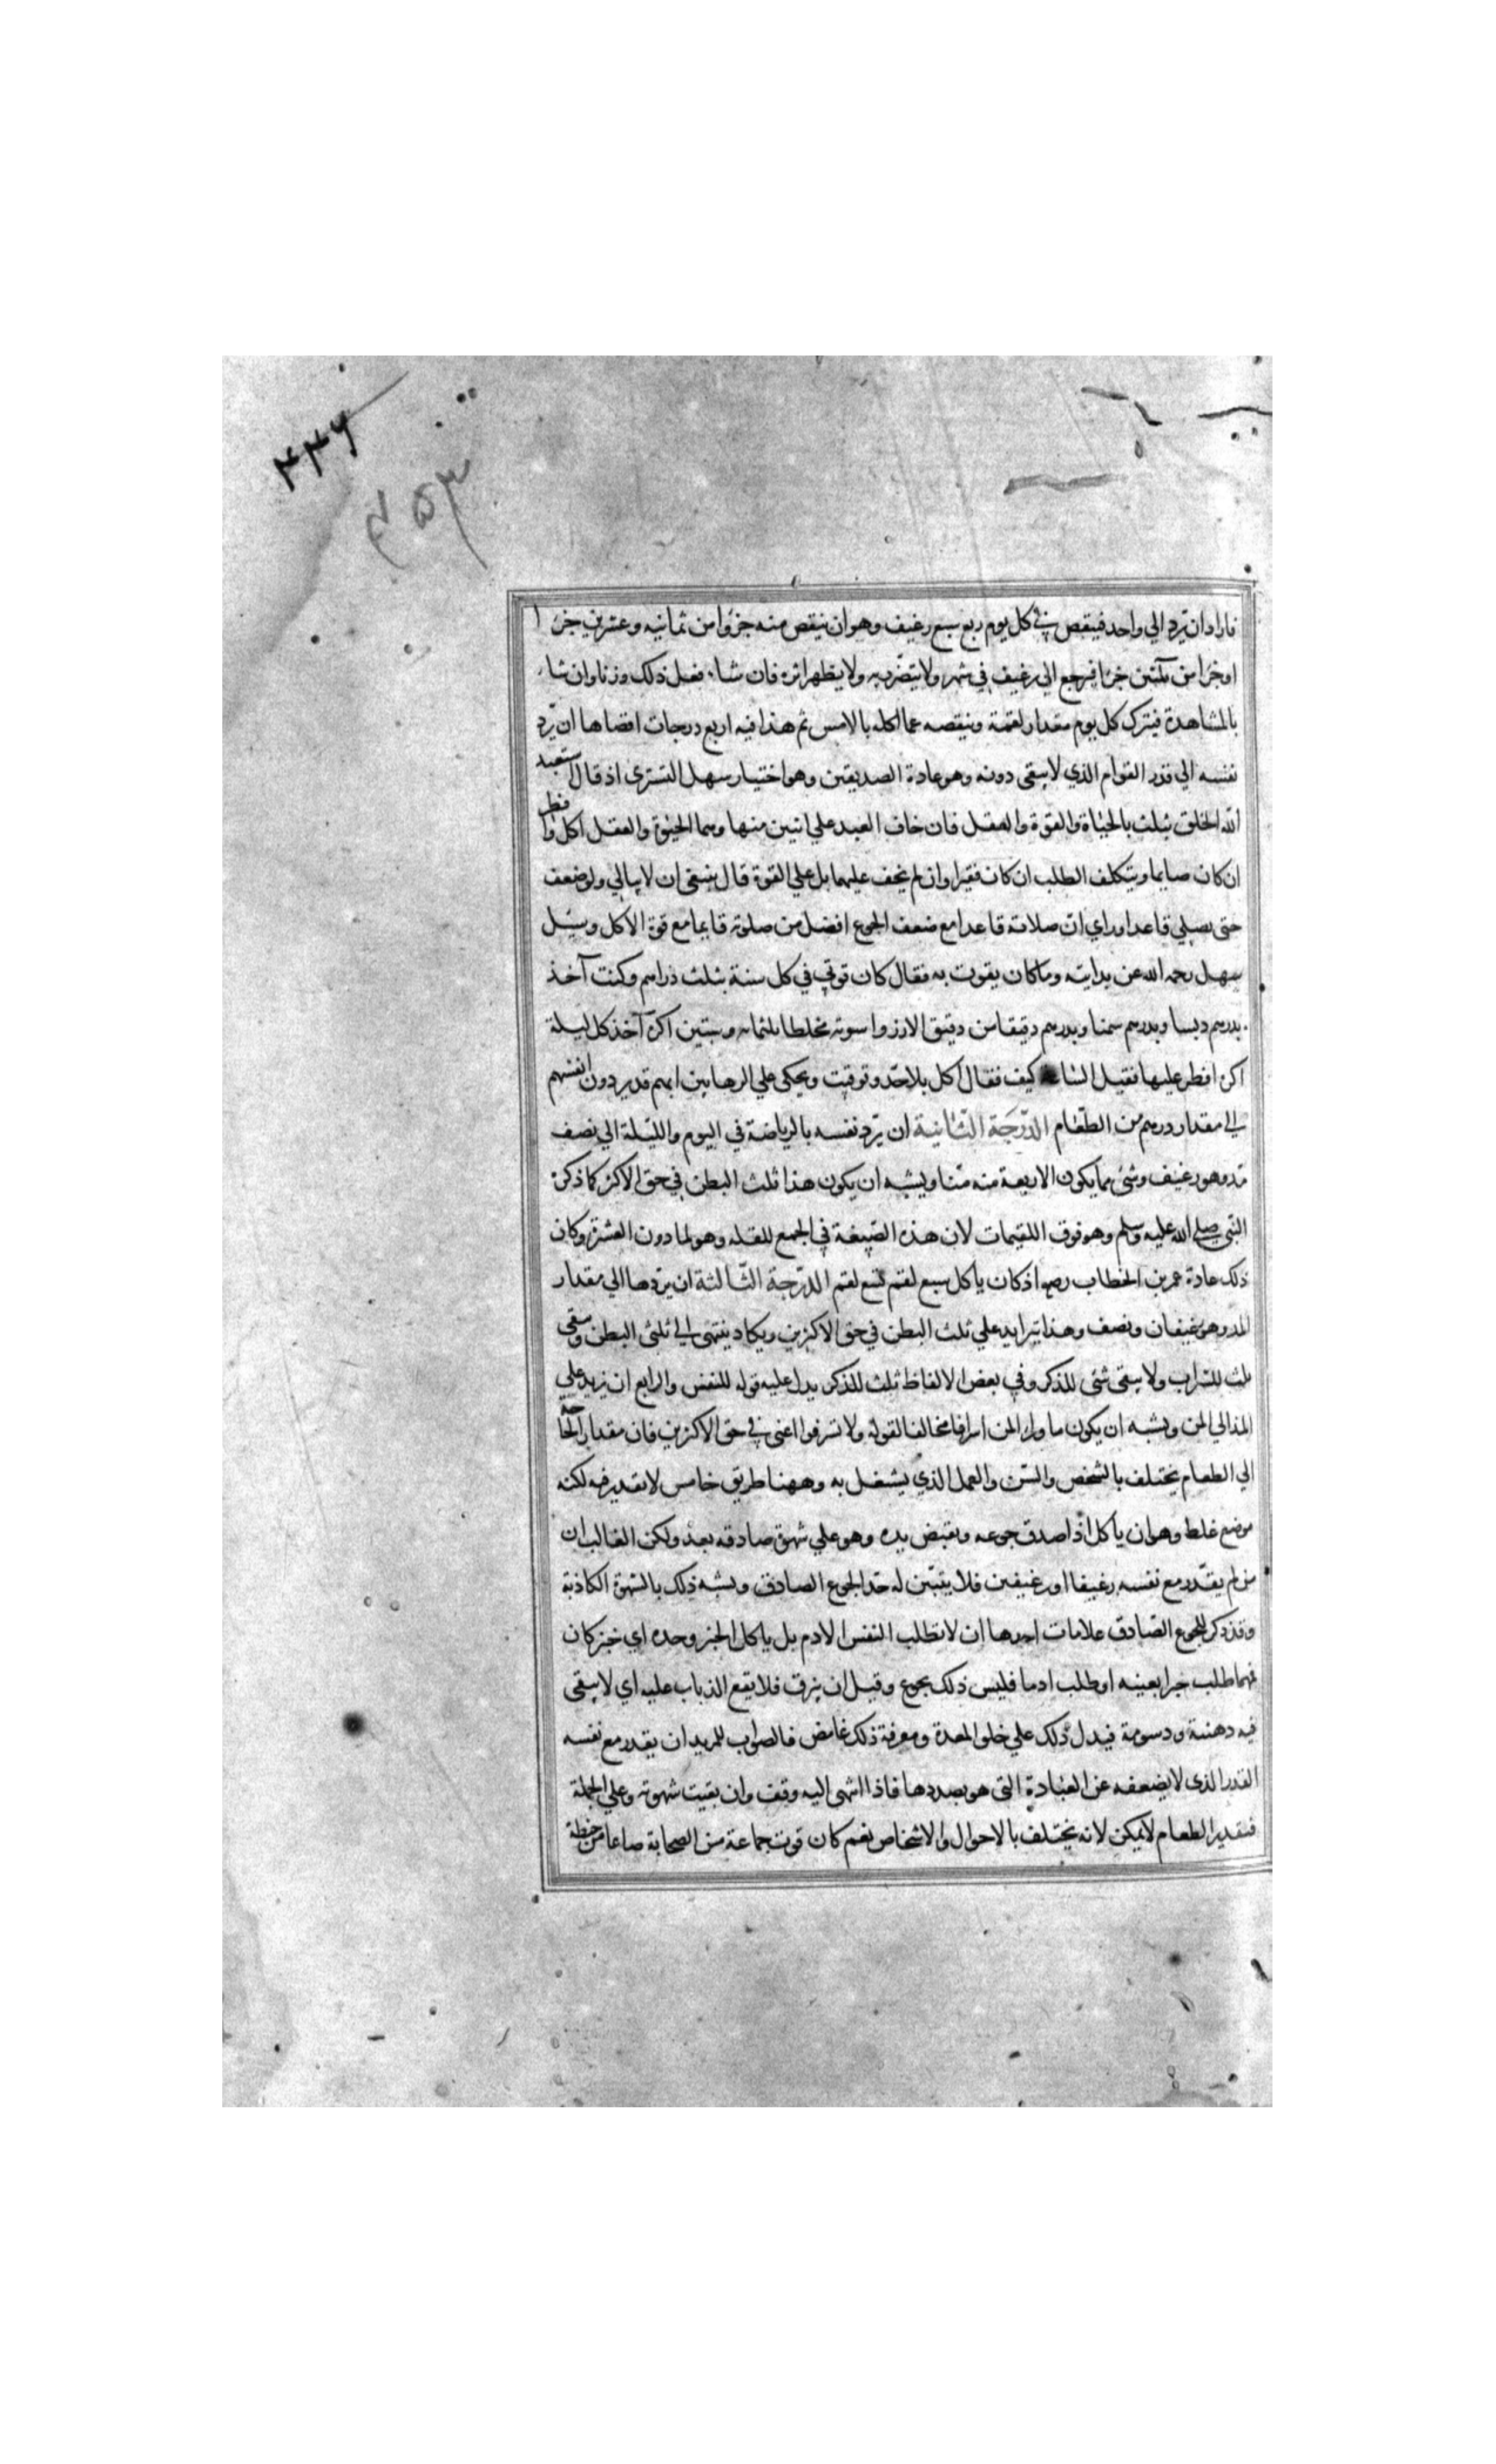 ۴۳۶
۴۵۳
فاراد ان يرد الي واحد فينقص في كل يوم ربع سبع رغيف وهو ان ينقص منه جزوا من ثمانيه وعشرين جزا
او جزا من ثلثين جزا فيرجع الي رغيف في شهر ولا يتضرر به ولا يظهر اثره فان شاء فعل ذلك وزنا وان شاء
بالمشاهدة فيترك كل يوم مقدار لقمة وينقصه عما اكله بالامس ثم هذا فيه اربع درجات اقصاها ان يرد
نفسه الي قدر القوام الذي لا يبقى دونه وهو عادة الصديقين وهو اختيار سهل التسترى اذ قال استعبد
الله الخلق بثلث بالحياة والقوة والعقل فان خاف العبد علي اثنين منها وهما الحيوة والعقل اكل وافطر
ان كان صايما ويتكلف الطلب ان كان فقيرا وان لم يخف عليهما بل علي القوة قال ينبغى ان لا يبالي ولو ضعف
حتى يصلي قاعدا وراي ان صلاته قاعدا مع ضعف الجوع افضل من صلوته قايما مع قوة الاكل وسئل
سهل رحمه الله عن بدايته وما كان يقوت به فقال كان قوتي في كل سنة بثلث دراهم وكنت آخذ
بدرهم دبسا وبدرهم سمنا وبدرهم دقيقا من دقيق الارز واسوته مخلطا ثلثمائه وستين اكرة آخذ كل ليلة
اكرة افطر عليها فقيل الساعه كيف فقال آكل بلا حد وتوقيت ويحكى علي الرهابين انهم قد يردون انفسهم
الي مقدار درهم من الطعام الدرجة الثانية ان يرد نفسه بالرياضة في اليوم والليلة الي نصف
مد وهو رغيف وشئ مما يكون الاربعة منه منا ويشبه ان يكون هذا ثلث البطن في حق الاكثر كما ذكره
النبي صلي الله عليه وسلم وهو فوق اللقيمات لان هذه الصيغة في الجمع للقله وهو لما دون العشرة وكان
ذلك عادة عمر بن الخطاب رضه اذ كان ياكل سبع لقم تسع لقم الدرجة الثالثة ان يردها الي مقدار
المد وهو رغيفان ونصف وهذا يزايد علي ثلث البطن في حق الاكثرين ويكاد ينتهى الي ثلثى البطن ويبقى
ثلث للشراب ولا يبقى شئ للذكر وفي بعض الالفاظ ثلث للذكر بدل عليه قوله للنفس والرابع ان يزيد علي
المد الي المن ويشبه ان يكون ما وراء المن اسرافا مخالفا لقوله ولا تسرفوا اعنى في حق الاكثرين فان مقدار الحاجة
الي الطعام يختلف بالشخص والسن والعمل الذي يشغل به وههنا طريق خامس لا تقدير فيه لكنه
موضع غلط وهو ان ياكل اذا صدق جوعه ويقبض يده وهو علي شهوة صادقه بعد ولكن الغالب ان
من لم يقدر مع نفسه رغيفا او رغيفين فلا يتبين له حد الجوع الصادق ويشبه ذلك بالشهوة الكاذبة
وقد ذكر للجوع الصادق علامات احدها ان لا تطلب النفس الادم بل ياكل الخبز وحده اي خبز كان
فمهما طلب خبزا بعينه او طلب ادما فليس ذلك بجوع وقيل ان يبزق فلا يقع الذباب عليه اي لا يبقى
فيه دهنية ودسومة فيدل ذلك علي خلو المعدة ومعرفة ذلك غامض فالصواب للمريد ان يقدر مع نفسه
القدر الذى لا يضعفه عن العبادة التى هو بصددها فاذا انتهى اليه وقف وان بقيت شهوته وعلي الجملة
فتقدير الطعام لا يمكن لانه يختلف بالاحوال والاشخاص نعم كان قوت جماعة من الصحابة صاعا من حنطة